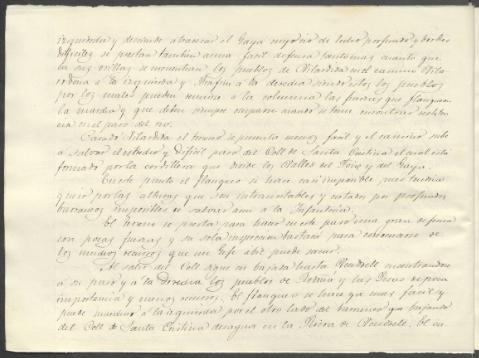 izquierda y deviendo atravesar el Gaya mejorna de lecho profundo y bordes
dificiles se prestan tambien a una facil defensa tantomas cuanto que
la sus orillas se encuentran los pueblos de Vilardida en el camino Vila
rodona a la izquierda y Puaffin a la derecha siendo estos los pueblos
por los cuales pueden reunirse a la columna las fuerzas que flanqueen
la marcha y que deben siempre emplearse cuando se tema encontrar resisten
cia en el paso del rio.
Pasado Vilardida el terreno se presenta menos facil y el camino sube
a salvar el estrecho y dificil paso del Coll de Santa Cristina el cual esta
formado por la cordillera que divide los Valles del Foix y del Gaya.
En este punto el flanqueo se hace casi imposible pues tendria
que ir por las alturas que son intransitables y cortadas por profundos
barrancos imposibles de salvar aun a la Infanteria.
El terreno se presta para hacer en este paso una gran defensa
con pocas fuerzas y su sola inspeccion bastará para convencerse de
los muchos recursos que un Gefe abil puede sacar.
Al salir del Coll sigue su bajada hasta Rondeta encontrandose
a su paso y a la derecha los pueblos de Pobla y las Pesas de poca
importancia y menos recursos. El flanqueo se hace ya mas facil y
puede marchar a la izquierda por el otro lado del barranco que bajando
del Coll de Santa Cristina desagua en la Riera de Rondeta. El ca